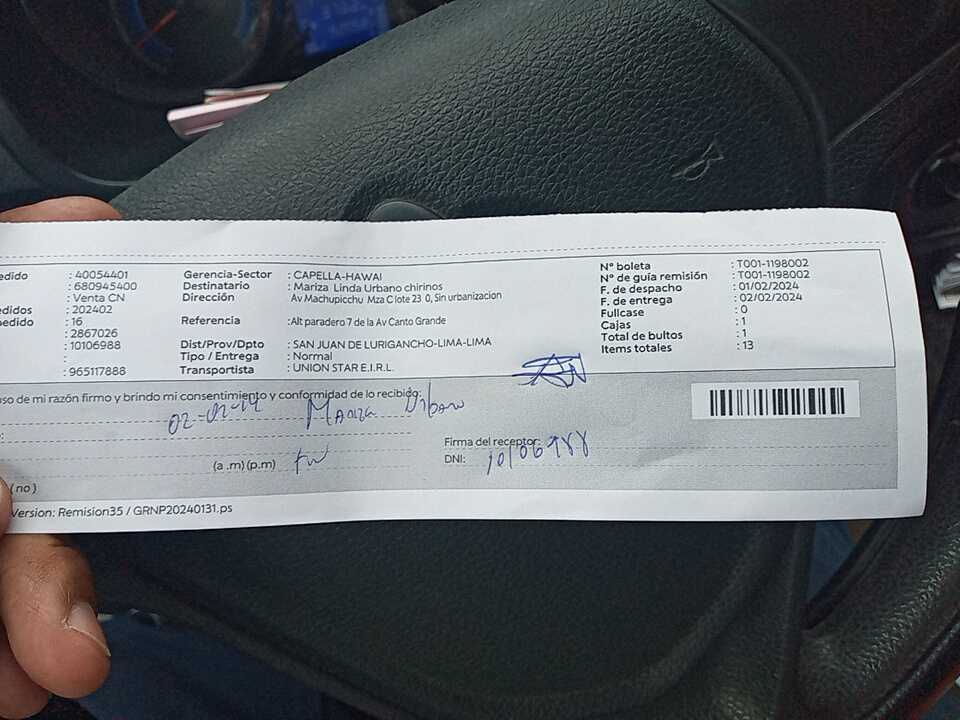 edido : 40054401
: 680945400
: Venta CN
edidos : 202402
pedido : 16
: 2867026
: 10106988
:
: 965117888
Gerencia-Sector : CAPELLA-HAWAI
Destinatario : Mariza Linda Urbano chirinos
Dirección Av Machupicchu Mza C lote 23 0, Sin urbanizacion
Referencia : Alt paradero 7 de la Av Canto Grande
Dist/Prov/Dpto : SAN JUAN DE LURIGANCHO-LIMA-LIMA
Tipo / Entrega : Normal
Transportista : UNION STAR E.I.R.L.
N° boleta : T001-1198002
N° de guía remisión : T001-1198002
F. de despacho : 01/02/2024
F. de entrega : 02/02/2024
Fullcase : 0
Cajas : 1
Total de bultos : 1
Items totales : 13
uso de mi razón firmo y brindo mi consentimiento y conformidad de lo recibido:
Mariza Urbano
Firma del receptor:
(a .m) (p.m)
DNI:
( no )
Version: Remision35 / GRNP20240131.ps